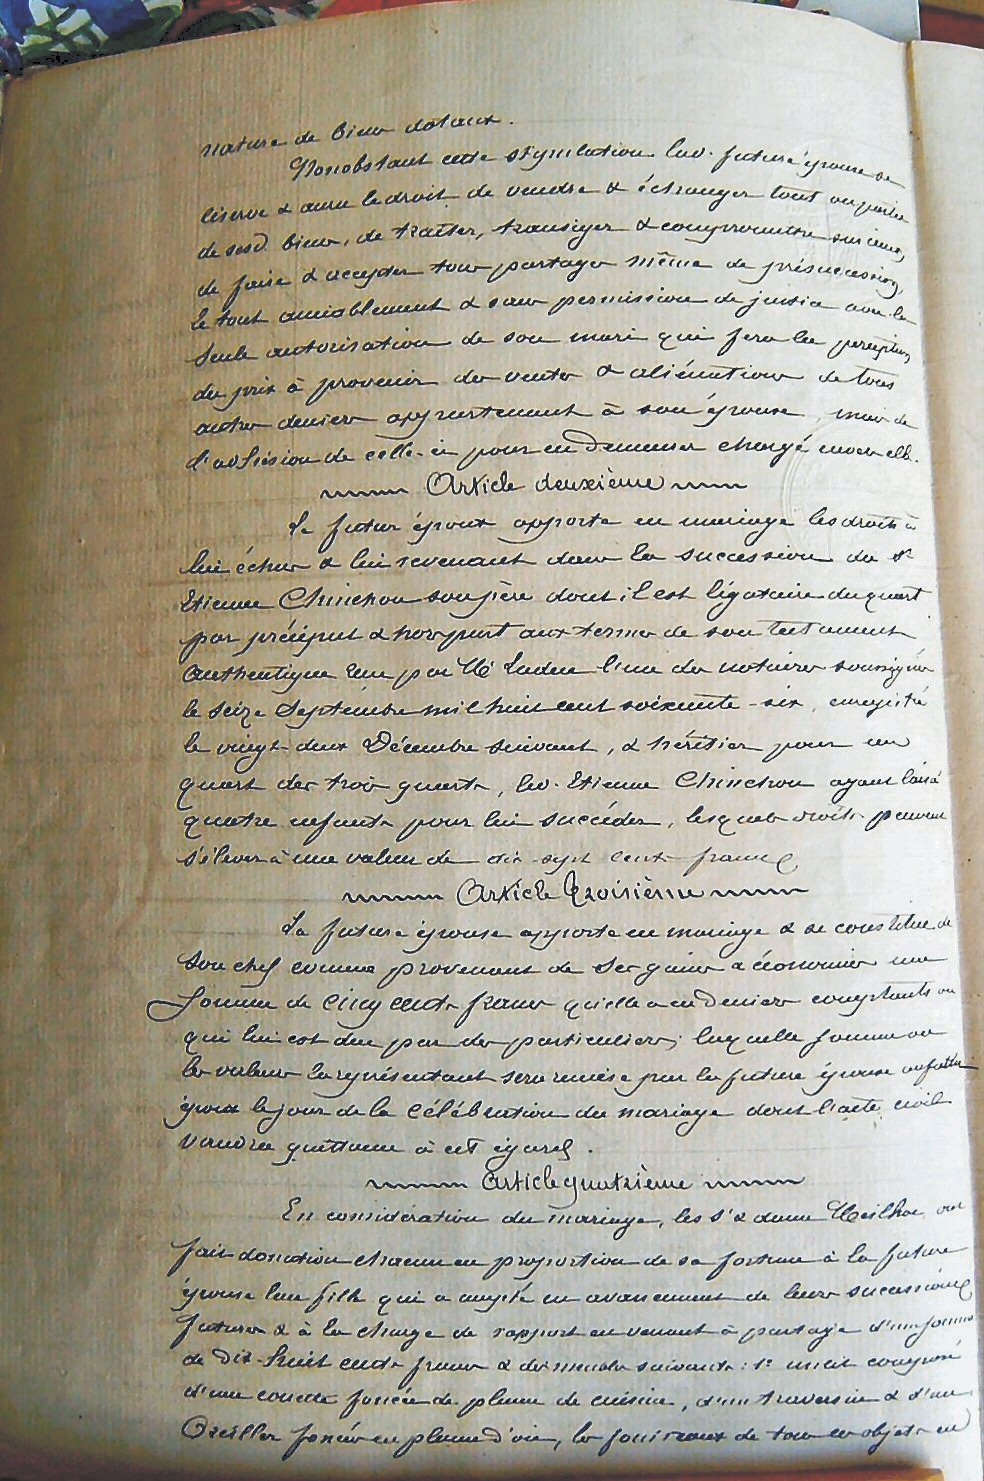 nature de biens dotaux.
Nonobstant cette stipulation lad. future épouse se
réserve & aura le droit de vendre & échanger tout ou partie
de sesd. biens, de traiter, transiger & compromettre sur iceux,
de faire & accepter tous partages même de présuccession,
le tout amiablement & sans permission de justice avec la
seule autorisation de son mari qui fera la perception
du prix à provenir des ventes & aliénations de tous
autres deniers appartenant à son épouse, mais de
l'adhésion de celle-ci pour en demeurer chargé envers elle.
Article deuxième
Le futur époux apporte en mariage les droits à
lui échus & lui revenant dans la succession du sr
Etienne Chinchou son père dont il est légataire du quart
par préciput & hors part aux termes de son testament
authentique reçu par Me l'un des notaires soussignés
le seize Septembre mil huit cent soixante-six, enregistré
le vingt-deux Décembre suivant, & héritier pour un
quart des trois quarts, led. Etienne Chinchou ayant laissé
quatre enfants pour lui succéder, lesquels droits peuvent
s'élever à une valeur de dix-sept cents francs
Article troisième
La future épouse apporte en mariage & se constitue de
son chef comme provenant de ses gains & économies une
somme de cinq cents francs qu'elle a en deniers comptants ou
qui lui est due par des particuliers; laquelle somme ou
les valeurs la représentant sera remise par la future épouse au futur
époux le jour de la célébration du mariage dont l'acte civil
vaudra quittance à cet égard.
Article quatrième
En considération du mariage, les s. & dame Meilhac ont
fait donation chacun en proportion de sa fortune à la future
épouse leur fille qui a accepté en avancement de leurs successions
futures & à la charge de rapport en venant à partage d'une somme
de dix-huit cents francs & des meubles suivants: 1° un lit composé
d'une couette foncée de plume de cuisine, d'un traversin & d'un
Oreiller foncés en plume d'oie, les fourreaux de tous ces objets en